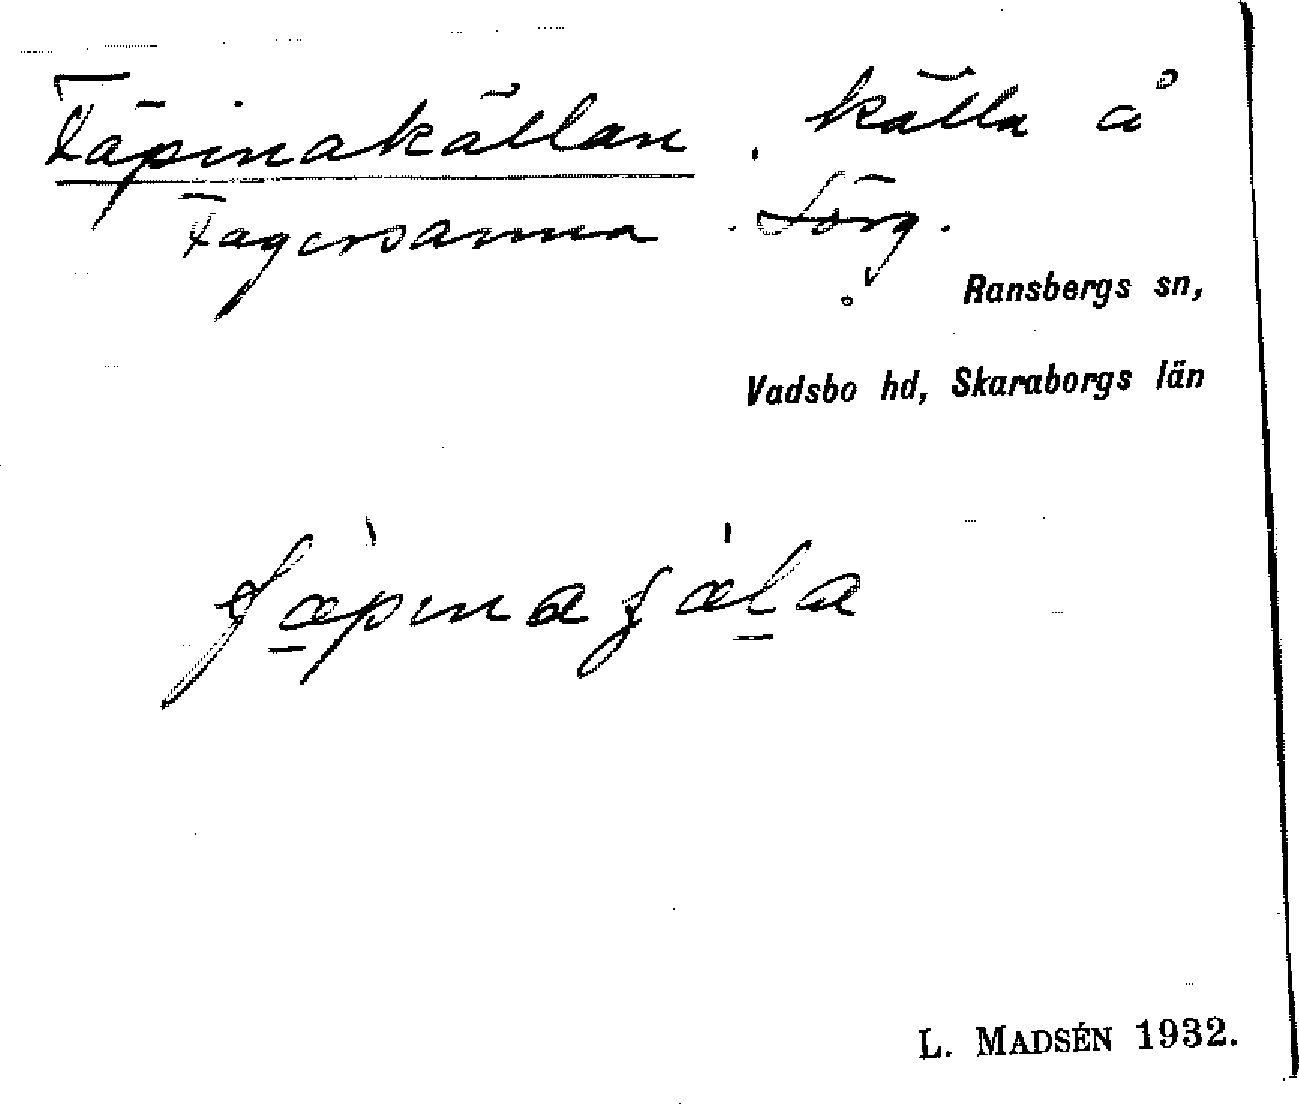 Fäpinakällan, källa å
Fagersanna. Sörg.
Ransbergs sn,
Vadsbo hd, Skaraborgs län
L. MADSÉN 1932.